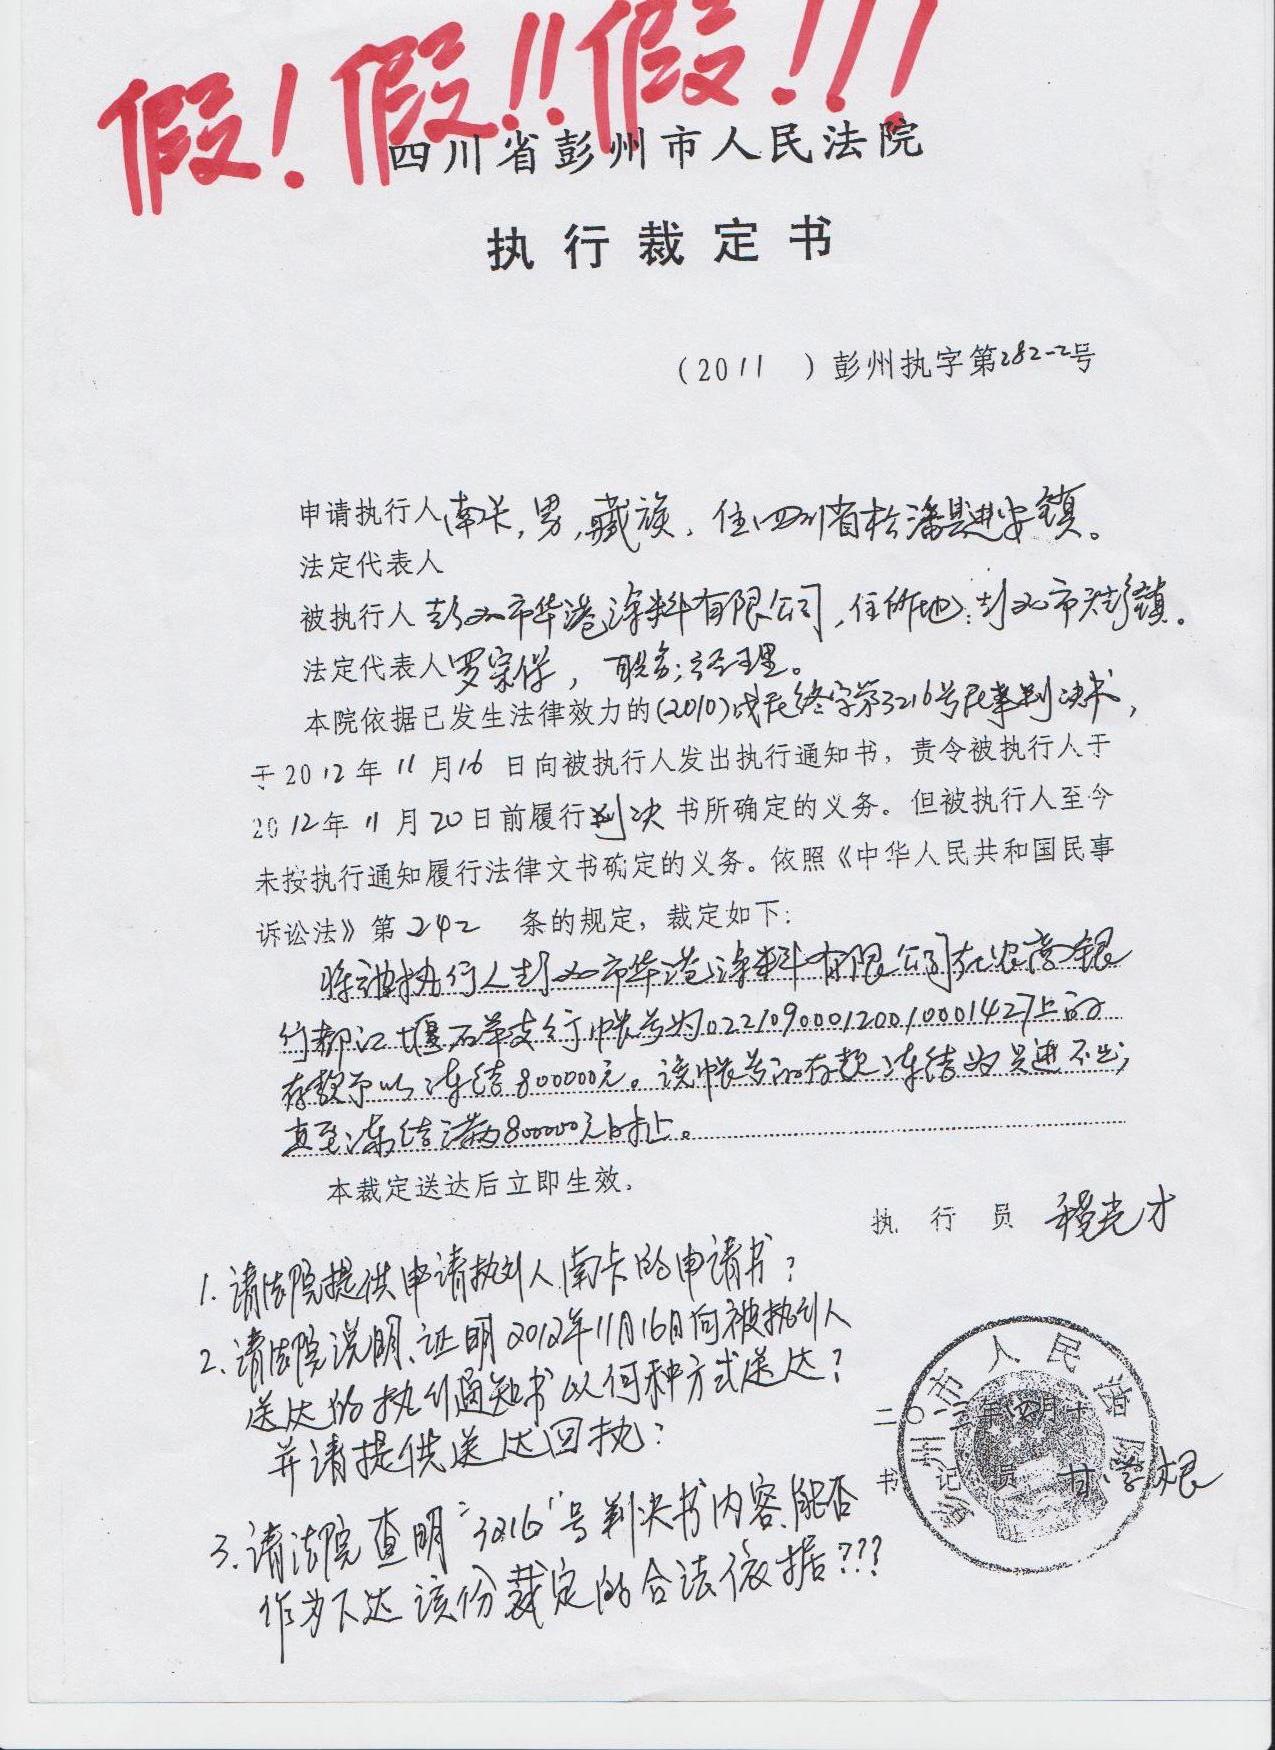 假！假！！假！！！
四川省彭州市人民法院
执行裁定书
（2011 ）彭州执字第282-2号
申请执行人南卡，男，藏族，住四川省松潘县进安镇。
法定代表人
被执行人彭州市华港涂料有限公司，住所地：彭州市天彭镇。
法定代表人罗宗保，职务：经理。
本院依据已发生法律效力的(2010)成民终字第3216号民事判决书，
于2012年11月16日向被执行人发出执行通知书，责令被执行人于
2012年11月20日前履行判决书所确定的义务。但被执行人至今
未按执行通知履行法律文书确定的义务。依照《中华人民共和国民事
诉讼法》第242 条的规定，裁定如下：
将被执行人彭州市华港涂料有限公司在农商银
行都江堰石羊支行帐号为022109000120010001427上的
存款予以冻结800000元。该帐号的存款冻结为只进不出，
直至冻结满为800000元时止。
本裁定送达后立即生效。
执行员 程光才
1. 请法院提供申请执行人南卡的申请书？
2. 请法院说明、证明2012年11月16日向被执行人
送达的执行通知书以何种方式送达？
并请提供送达回执？
彭州市人民法院
书记员 甘学根
3. 请法院查明“3216”号判决书内容，能否
作为下达该份裁定的合法依据???